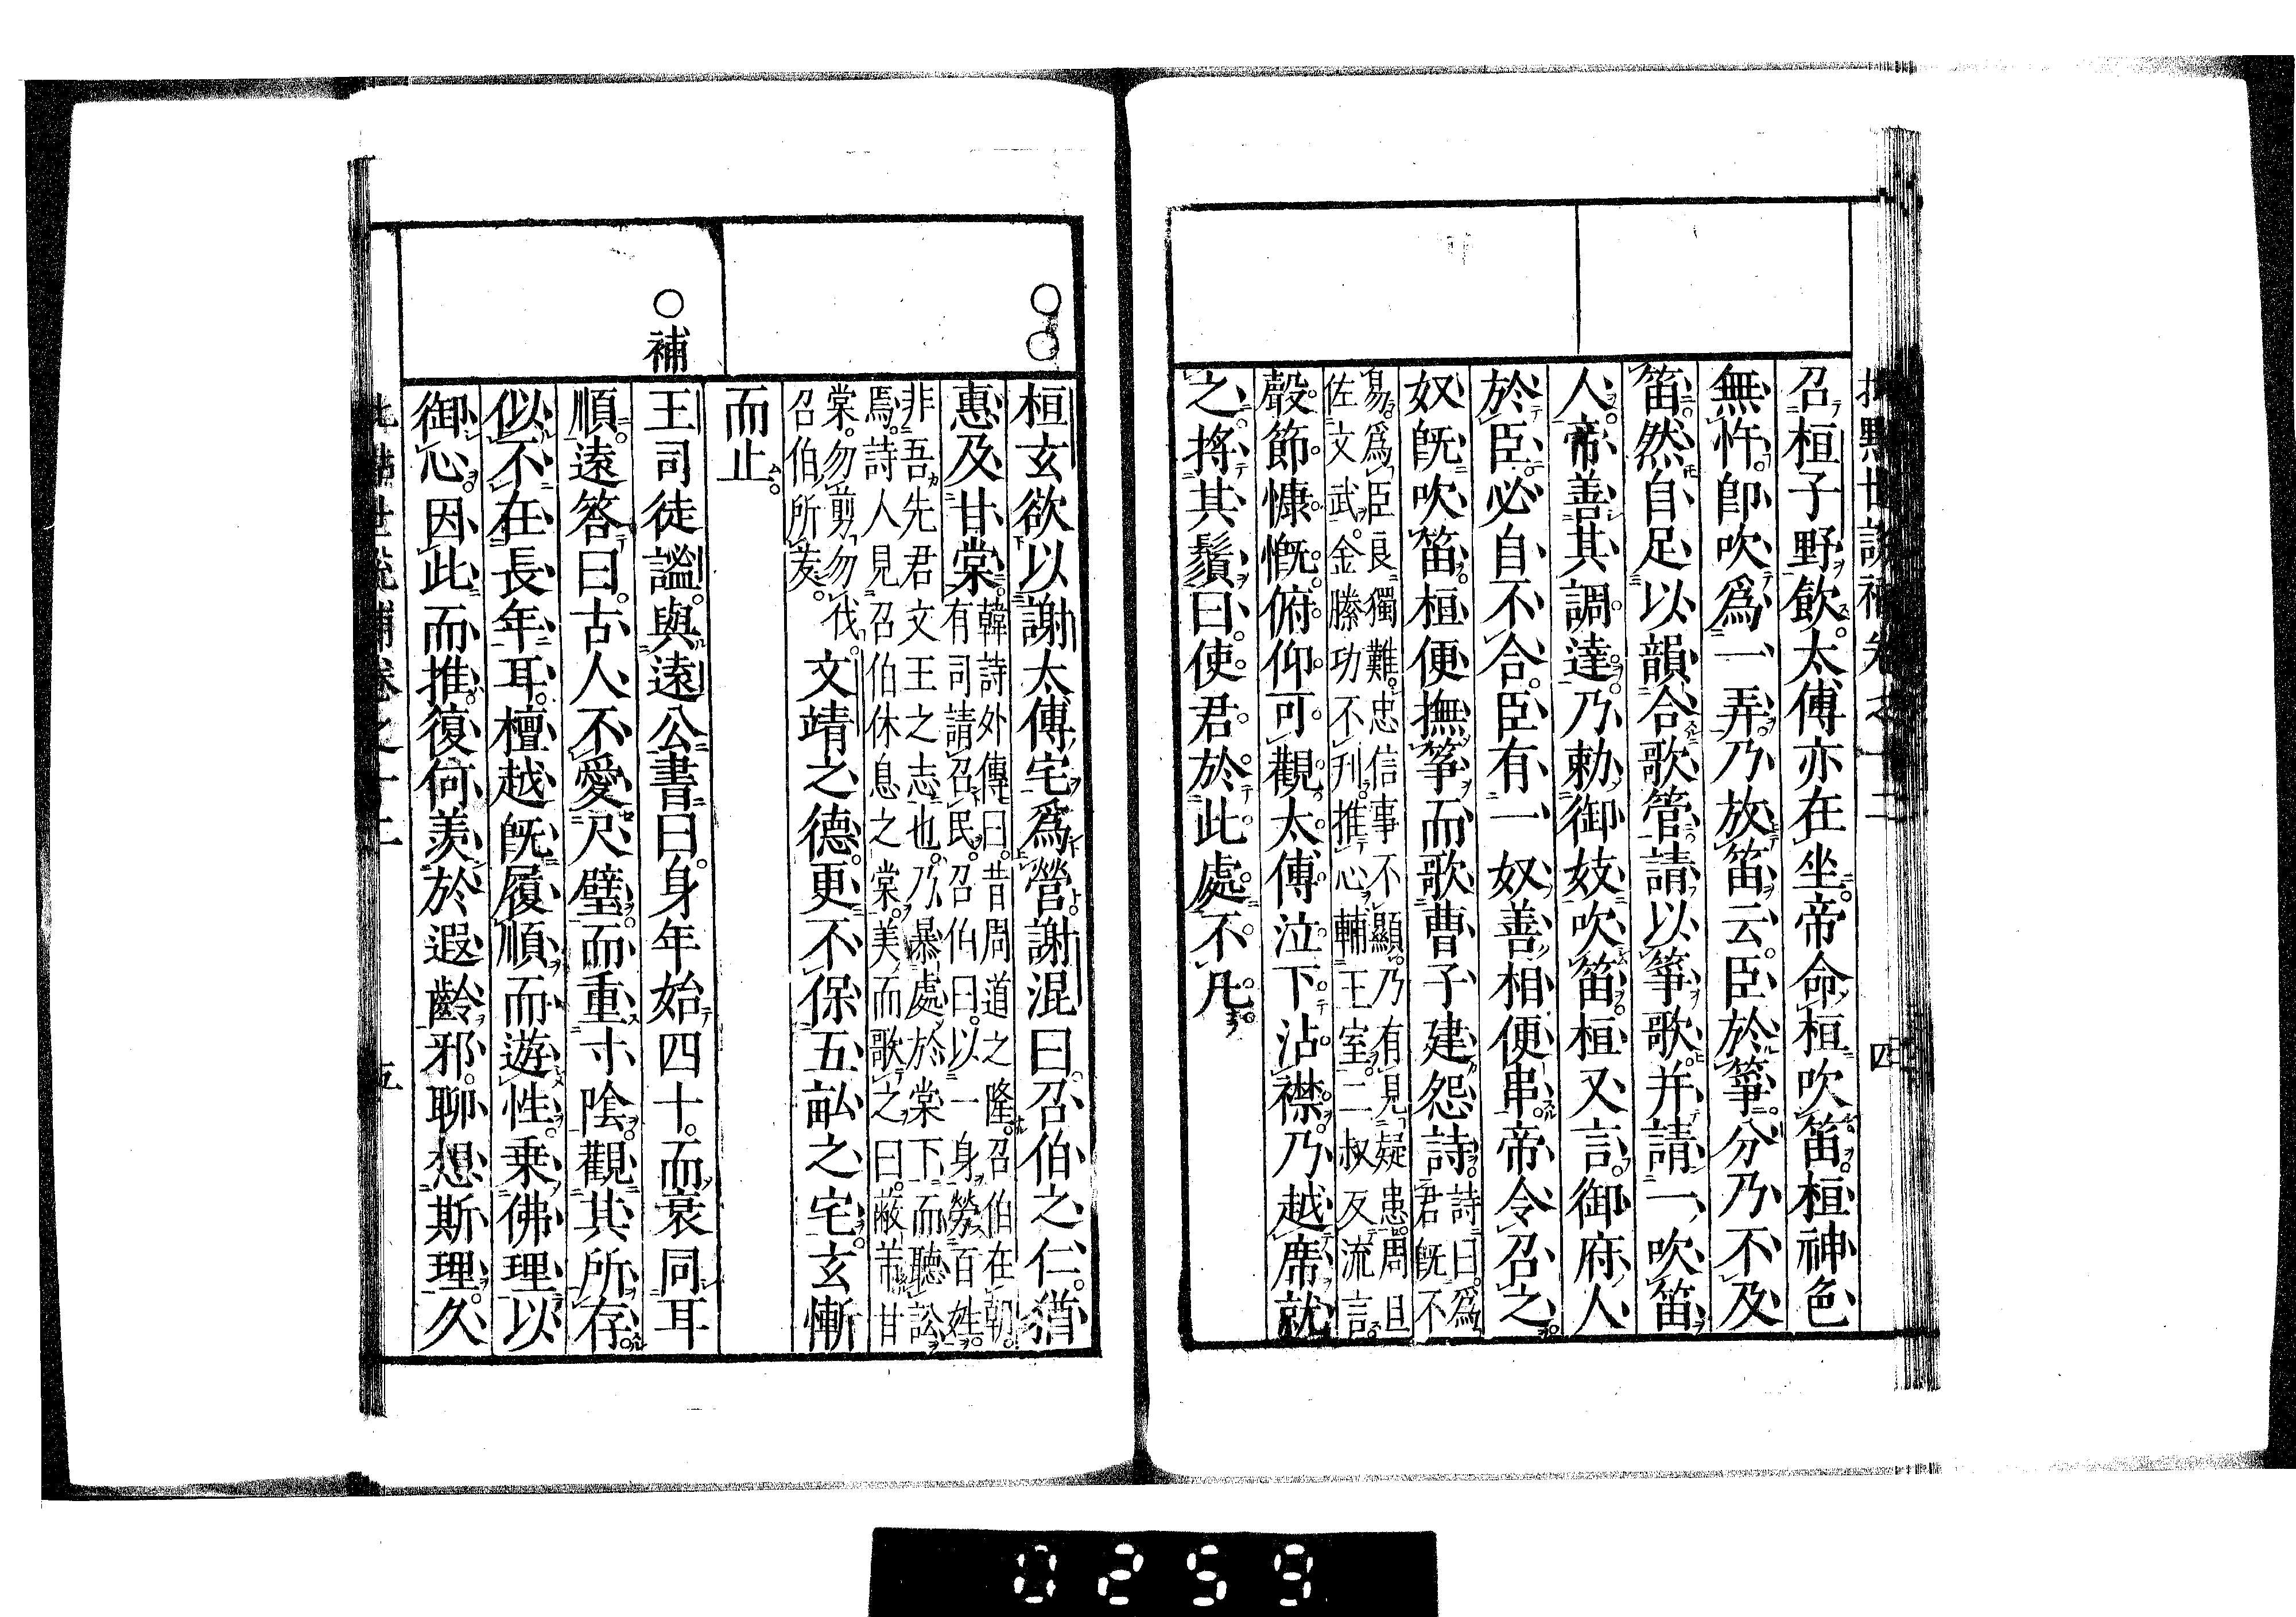 世說補卷之十二 四
召桓子野飲太傅亦在坐帝命桓吹笛桓神色
無忤卽吹爲一弄乃放笛云臣於箏分乃不及
笛然自足以韻合歌管請以箏歌并請一吹笛
人帝善其調達乃勅御妓吹笛桓又言御府人
於臣必自不合臣有一奴善相便串帝令召之
奴既吹笛桓便撫箏而歌曹子建怨詩
詩曰爲
君既不
易爲臣良獨難忠信事不顯乃有見疑患周旦
佐文武金縢功不刋推心輔王室二叔反流言
聲節慷慨俯仰可觀太傅泣下沾襟乃越席就
之捋其鬚曰使君於此處不凡
○○
桓玄欲以謝太傅宅爲營謝混曰召伯之仁猶
惠及甘棠
韓詩外傳曰昔周道之隆召伯在朝
有司請召民召伯曰以一身勞百姓
非吾先君文王之志也乃暴處於棠下而聽訟
焉詩人見召伯休息之棠美而歌之曰蔽芾甘
棠勿翦勿伐
召伯所茇
文靖之德更不保五畝之宅玄慚
而止
○補
王司徒謐與遠公書曰身年始四十而衰同耳
順遠答曰古人不愛尺璧而重寸陰觀其所存
似不在長年耳檀越既履順而遊性乗佛理以
御心因此而推復何羨於遐齡邪聊想斯理久
世說補卷之十二 五
0259